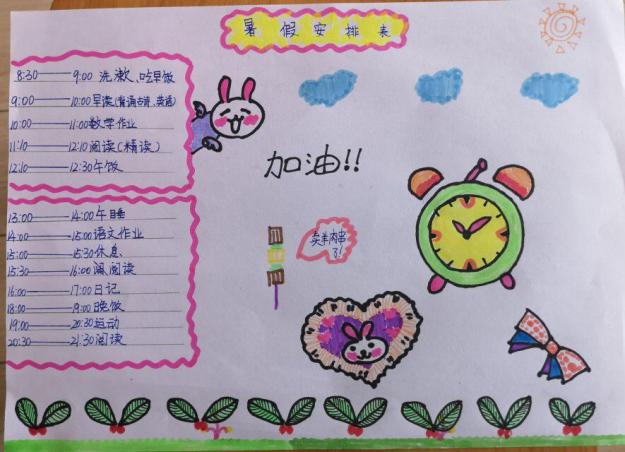 暑假安排表
8:30——9:00 洗漱、吃早饭
9:00——10:00早读(背诵古诗、英语)
10:00——11:00数学作业
11:10——12:10阅读(精读)
12:10——12:30午饭
加油!!
13:00——14:00午睡
14:00——15:00语文作业
15:00——15:30休息
15:30——16:00 阅读
16:00——17:00日记
18:00——19:00晚饭
19:00——20:30运动
20:30——21:30阅读
卖羊肉串